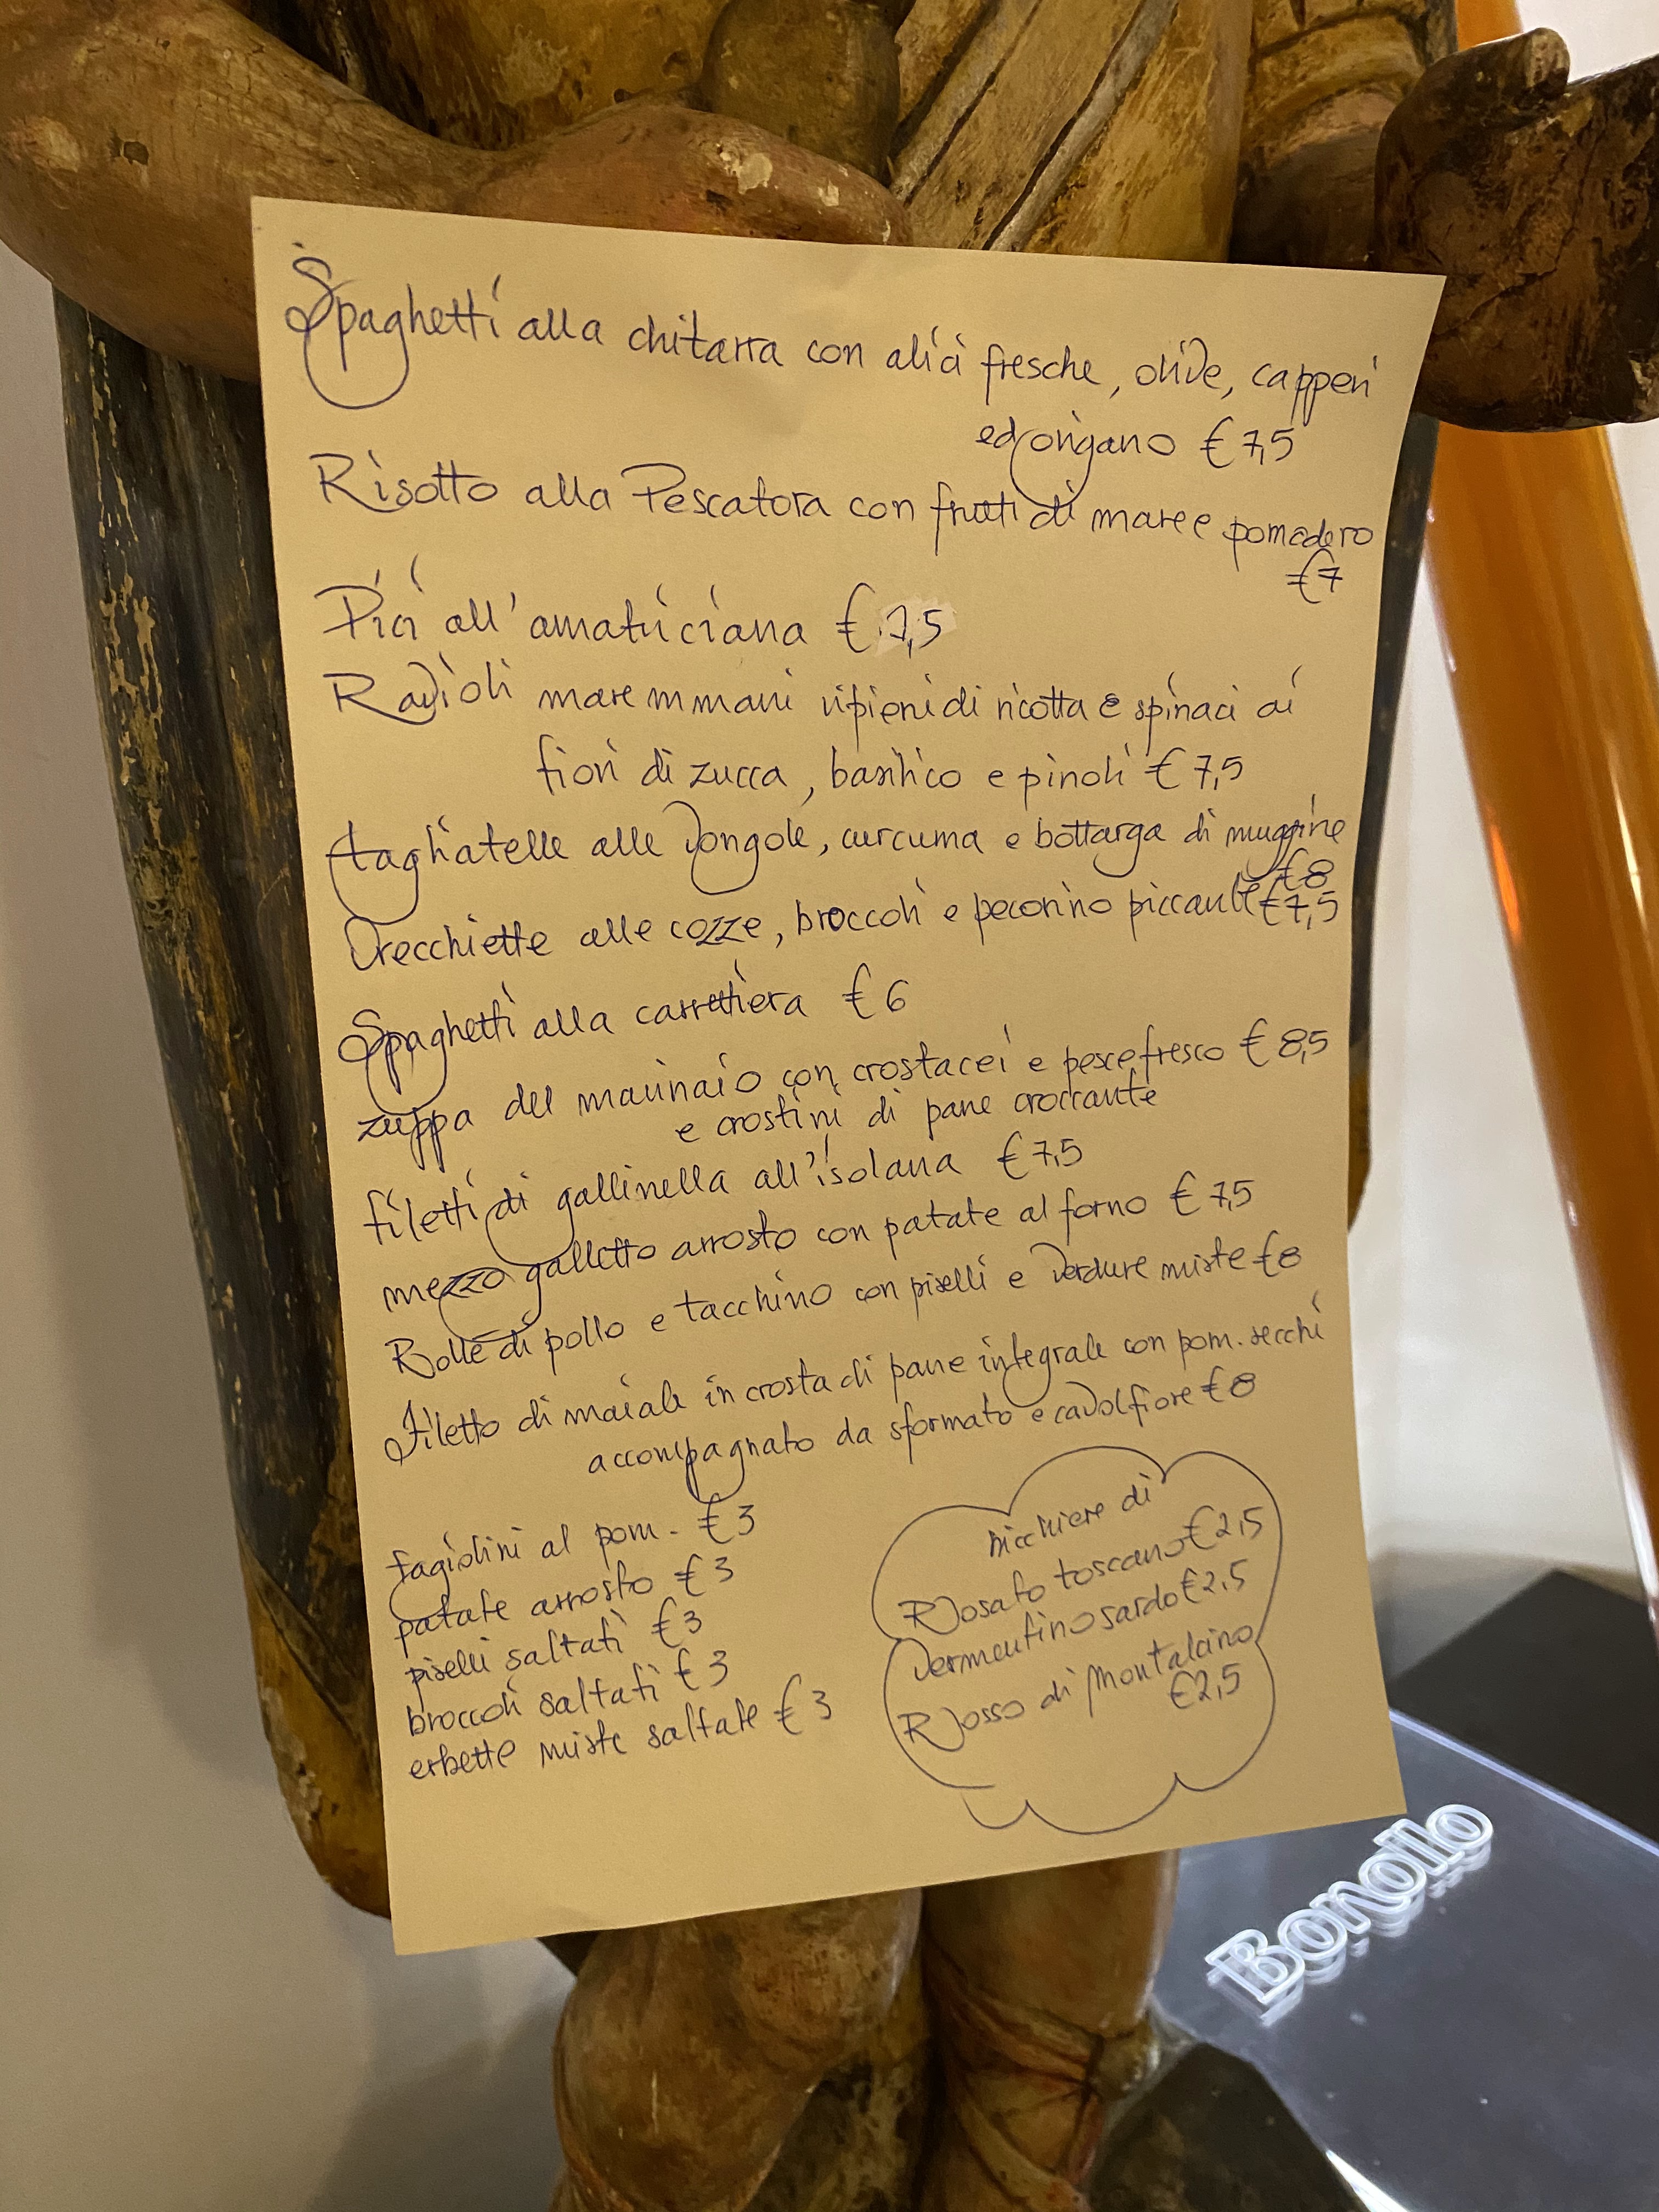 Spaghetti alla chitarra con alici fresche, olive, capperi
ed origano € 7,5
Risotto alla Pescatora con frutti di mare e pomodoro
€7
Pici all'amatriciana € 7,5
Ravioli maremmani ripieni di ricotta e spinaci ai
fiori di zucca, basilico e pinoli € 7,5
tagliatelle alle vongole, curcuma e bottarga di muggine
€8
Orecchiette alle cozze, broccoli e pecorino piccante €7,5
Spaghetti alla carrettiera € 6
zuppa del marinaio con crostacei e pesce fresco € 8,5
e crostini di pane croccante
filetti di gallinella all'isolana € 7,5
mezzo galletto arrosto con patate al forno € 7,5
Rollè di pollo e tacchino con piselli e verdure miste €8
Filetto di maiale in crosta di pane integrale con pom. secchi
accompagnato da sformato e cavolfiore €8
fagiolini al pom. € 3
patate arrosto € 3
piselli saltati € 3
broccoli saltati € 3
erbette miste saltate € 3
bicchiere di
Rosato toscano €2,5
Vermentino sardo €2,5
Rosso di Montalcino
€2,5
Bonollo